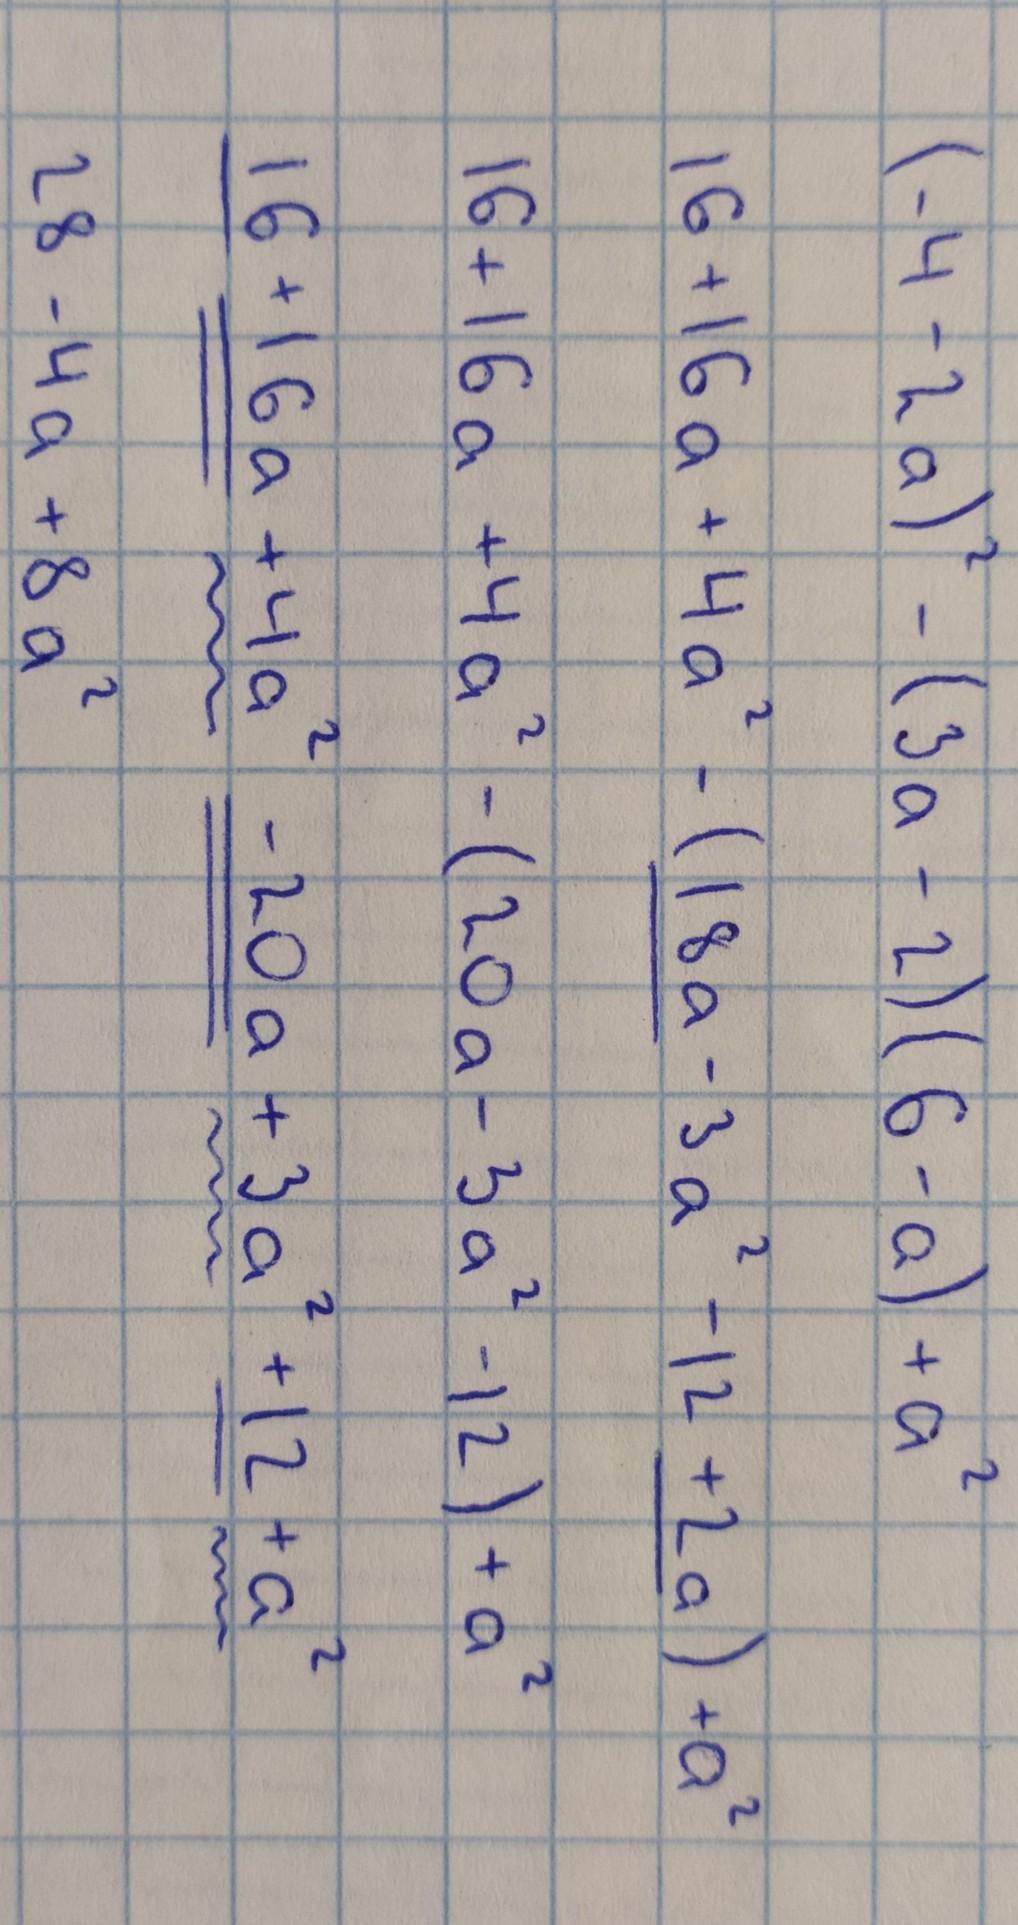 (-4-2a)² - (3a-2)(6-a) + a²
16 + 16a + 4a² - (18a - 3a² - 12 + 2a) + a²
16 + 16a + 4a² - (20a - 3a² - 12) + a²
16 + 16a + 4a² - 20a + 3a² + 12 + a²
28 - 4a + 8a²